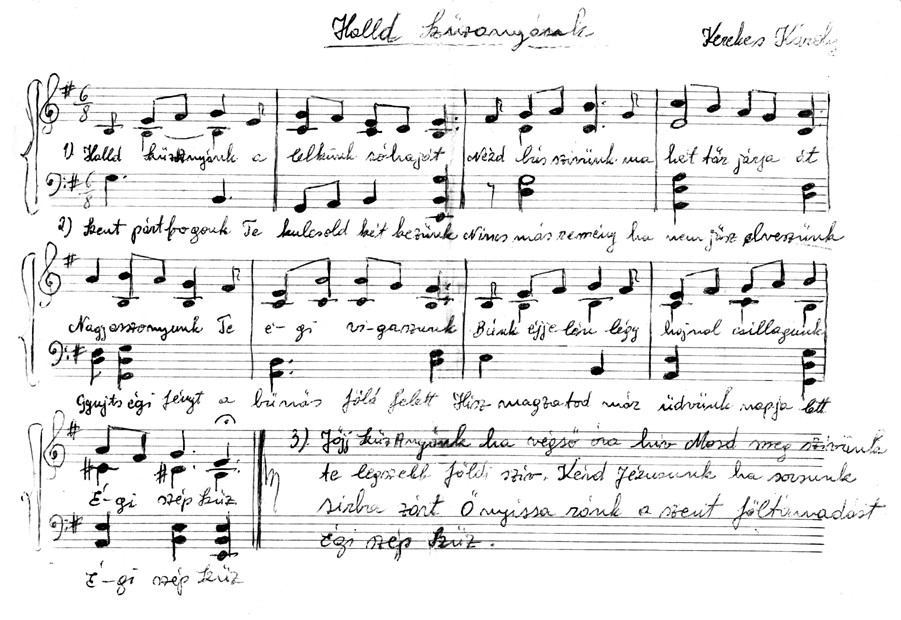 Halld Szűzanyának
Kerekes Károly
6 8 1) Halld SzűzAnyánk a lelkünk sóhaját Nézd bús szivünk ma hét tőr járja át
6 8
2) Szent pártfogonk Te kulcsold két kezünk Nincs más remény ha nem jösz elveszünk
Nagyasszonyunk Te é-gi vi-gaszunk Bűnk éjje-lén légy hajnal csillagunk
Gyujts égi fényt a bűnös föld felett Hisz magzatod már üdvünk napja lett
É-gi szép Szűz
É-gi szép Szűz
3) Jöjj SzűzAnyánk ha végső óra hiv Mosd meg szivünk
te legszebb földi sziv. Kérd Jézusunk ha sorsunk
sirba zárt Ő nyissa ránk a szent föltámadást
Égi szép Szűz.